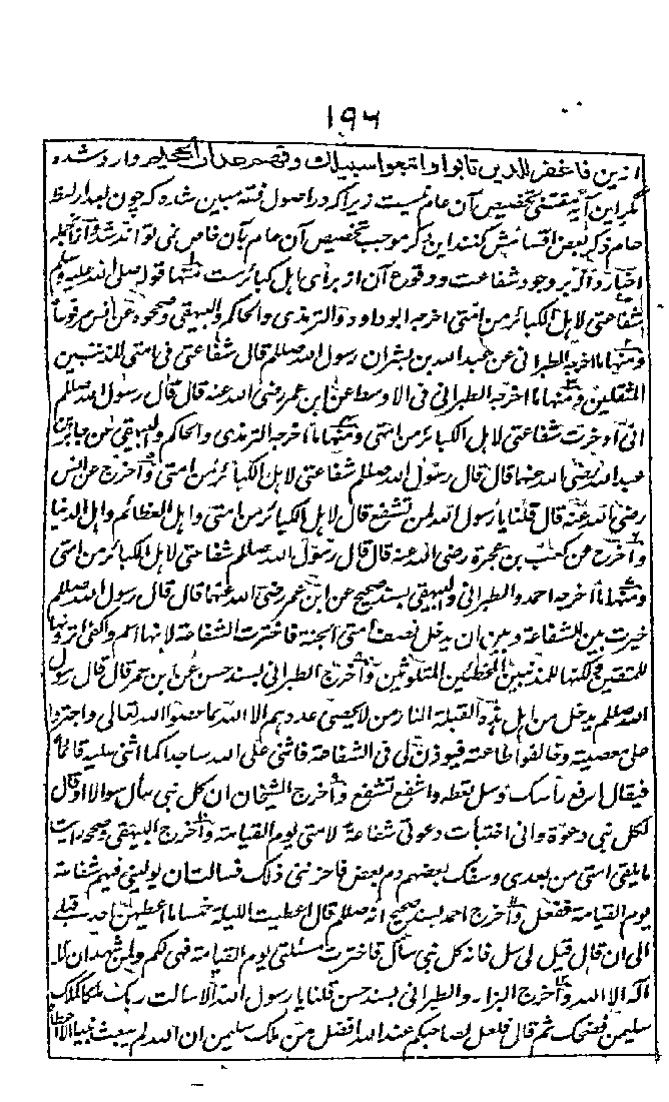 ۱۹۶
ازین فاغفر للذین تابوا واتبعوا سبیلک وقهم عذاب الجحیم وارد شده
مگر این آیه مقتضی تخصیص آن عام نیست زیراکه در اصول فقه مبین شده که چون بعد از لفظ
عام ذکر بعض اقسامش کنند این ذکر موجب تخصیص آن عام بآن خاص نمی تواند شد و از آنجمله
اخبار و آثار بر وجود شفاعت و وقوع آن از برای اهل کبائرست منها قول صلی الله علیه وسلم
شفاعتی لاهل الکبائر من امتی اخرجه ابوداود والترمذی والحاکم والبیهقی وصححوه عن انس مرفوعا
ومنها ما اخرجه الطبرانی عن عبد الله بن بشر ان رسول الله صلعم قال شفاعتی فی امتی للمذنبین
المثقلین ومنها ما اخرجه الطبرانی فی الاوسط عن ابن عمر رضی الله عنه قال قال رسول الله صلعم
انی ادخرت شفاعتی لاهل الکبائر من امتی ومنها ما اخرجه الترمذی والحاکم والبیهقی عن جابر بن
عبد الله رضی الله عنها قال قال رسول الله صلعم شفاعتی لاهل الکبائر من امتی واخرج عن انس
رضی الله عنه قال قلنا یا رسول الله لمن تشفع قال لاهل الکبائر من امتی واهل العظائم واهل الدنیا
واخرج عن کعب بن عجرة رضی الله عنه قال قال رسول الله صلعم شفاعتی لاهل الکبائر من امتی
ومنها ما اخرجه احمد والطبرانی والبیهقی بسند صحیح عن ابن عمر رضی الله عنها قال قال رسول الله صلعم
خیرت بین الشفاعة وبین ان یدخل نصف امتی الجنة فاخترت الشفاعة لانها اعم واکفی اترونها
للمتقین ولکنها للمذنبین المخطئین المتلوثین واخرج الطبرانی بسند حسن عن ابن عمر قال قال رسول
الله صلعم یدخل من اهل هذه القبلة النار من لا یحصی عددهم الا الله بما عصوا الله تعالی واجتروا
علی معصیته وخالفوا طاعته فیوذن لی فی الشفاعة فاثنی علی الله ساجدا کما اثنی علیه قائما
فیقال ارفع رأسک وسل تعطه واشفع تشفع واخرج الشیخان ان کل نبی سأل سوالا او قال
لکل نبی دعوة وانی اختبأت دعوتی شفاعة لامتی یوم القیامة واخرج البیهقی وصححه رایت
ما یلقی امتی من بعدی وسفک بعضهم دم بعض فاحزننی ذلک فسالت ان یولینی فیهم شفاعة
یوم القیامة ففعل واخرج احمد بسند صحیح انه صلعم قال اعطیت اللیلة خمسا ما اعطیهن احد قبلی
الی ان قال قیل لی سل فانه کل نبی سأل فاخترت مسئلتی یوم القیامة فهی لکم ولمن شهد ان لا
اله الا الله واخرج البزار والطبرانی بسند حسن قلنا یا رسول الله الا سالت ربک ملکا کملک
سلیمن فضحک ثم قال فلعل لصاحبکم عند الله افضل من ملک سلیمن ان الله لم یبعث نبیا الا اعطاه